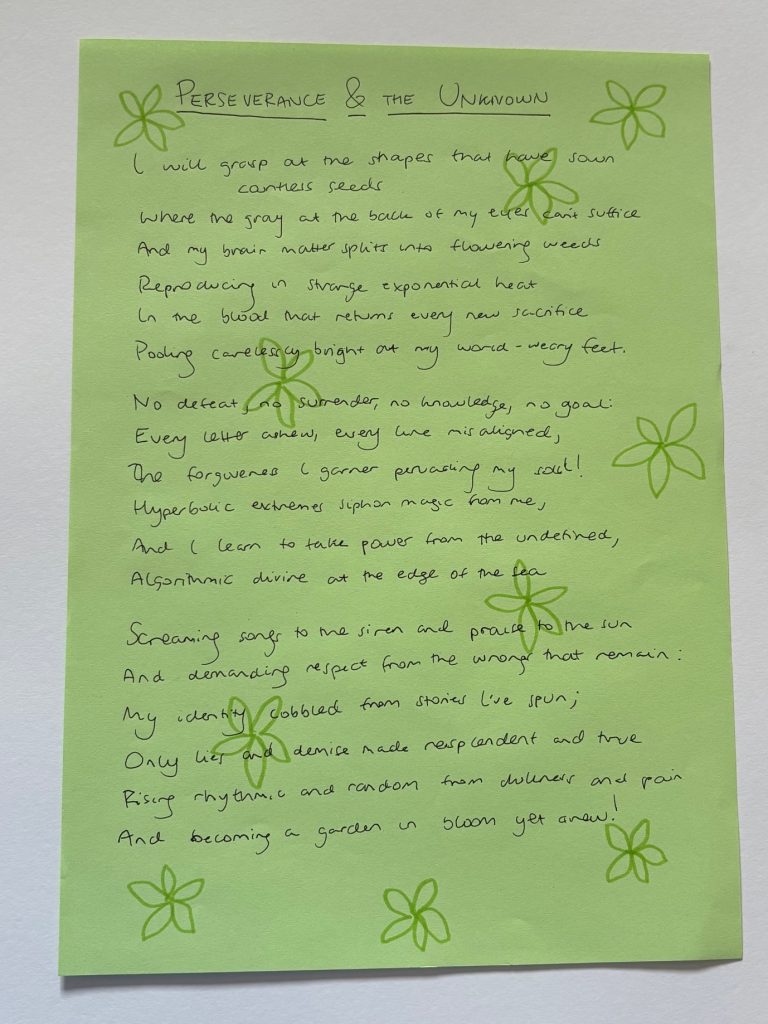 PERSEVERANCE & THE UNKNOWN
I will grasp at the shapes that have sown
countless seeds
Where the gray at the back of my eyes can't suffice
And my brain matter splits into flowering weeds
Reproducing in strange exponential heat
In the blood that returns every new sacrifice
Pooling carelessly bright at my world-weary feet.
No defeat, no surrender, no knowledge, no goal:
Every letter askew, every line misaligned,
The forgiveness I garner pervading my soul!
Hyperbolic extremes siphon magic from me,
And I learn to take power from the undefined,
Algorithmic divine at the edge of the sea
Screaming songs to the siren and praise to the sun
And demanding respect from the wrongs that remain:
My identity cobbled from stories I've spun;
Only lies and demise made resplendent and true
Rising rhythmic and random from dullness and pain
And becoming a garden in bloom yet anew!